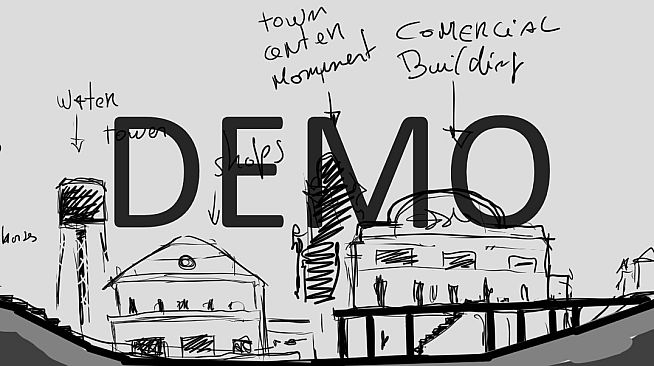 town
center
Monument
COMERCiAL
Building
water
tower
shops
DEMO